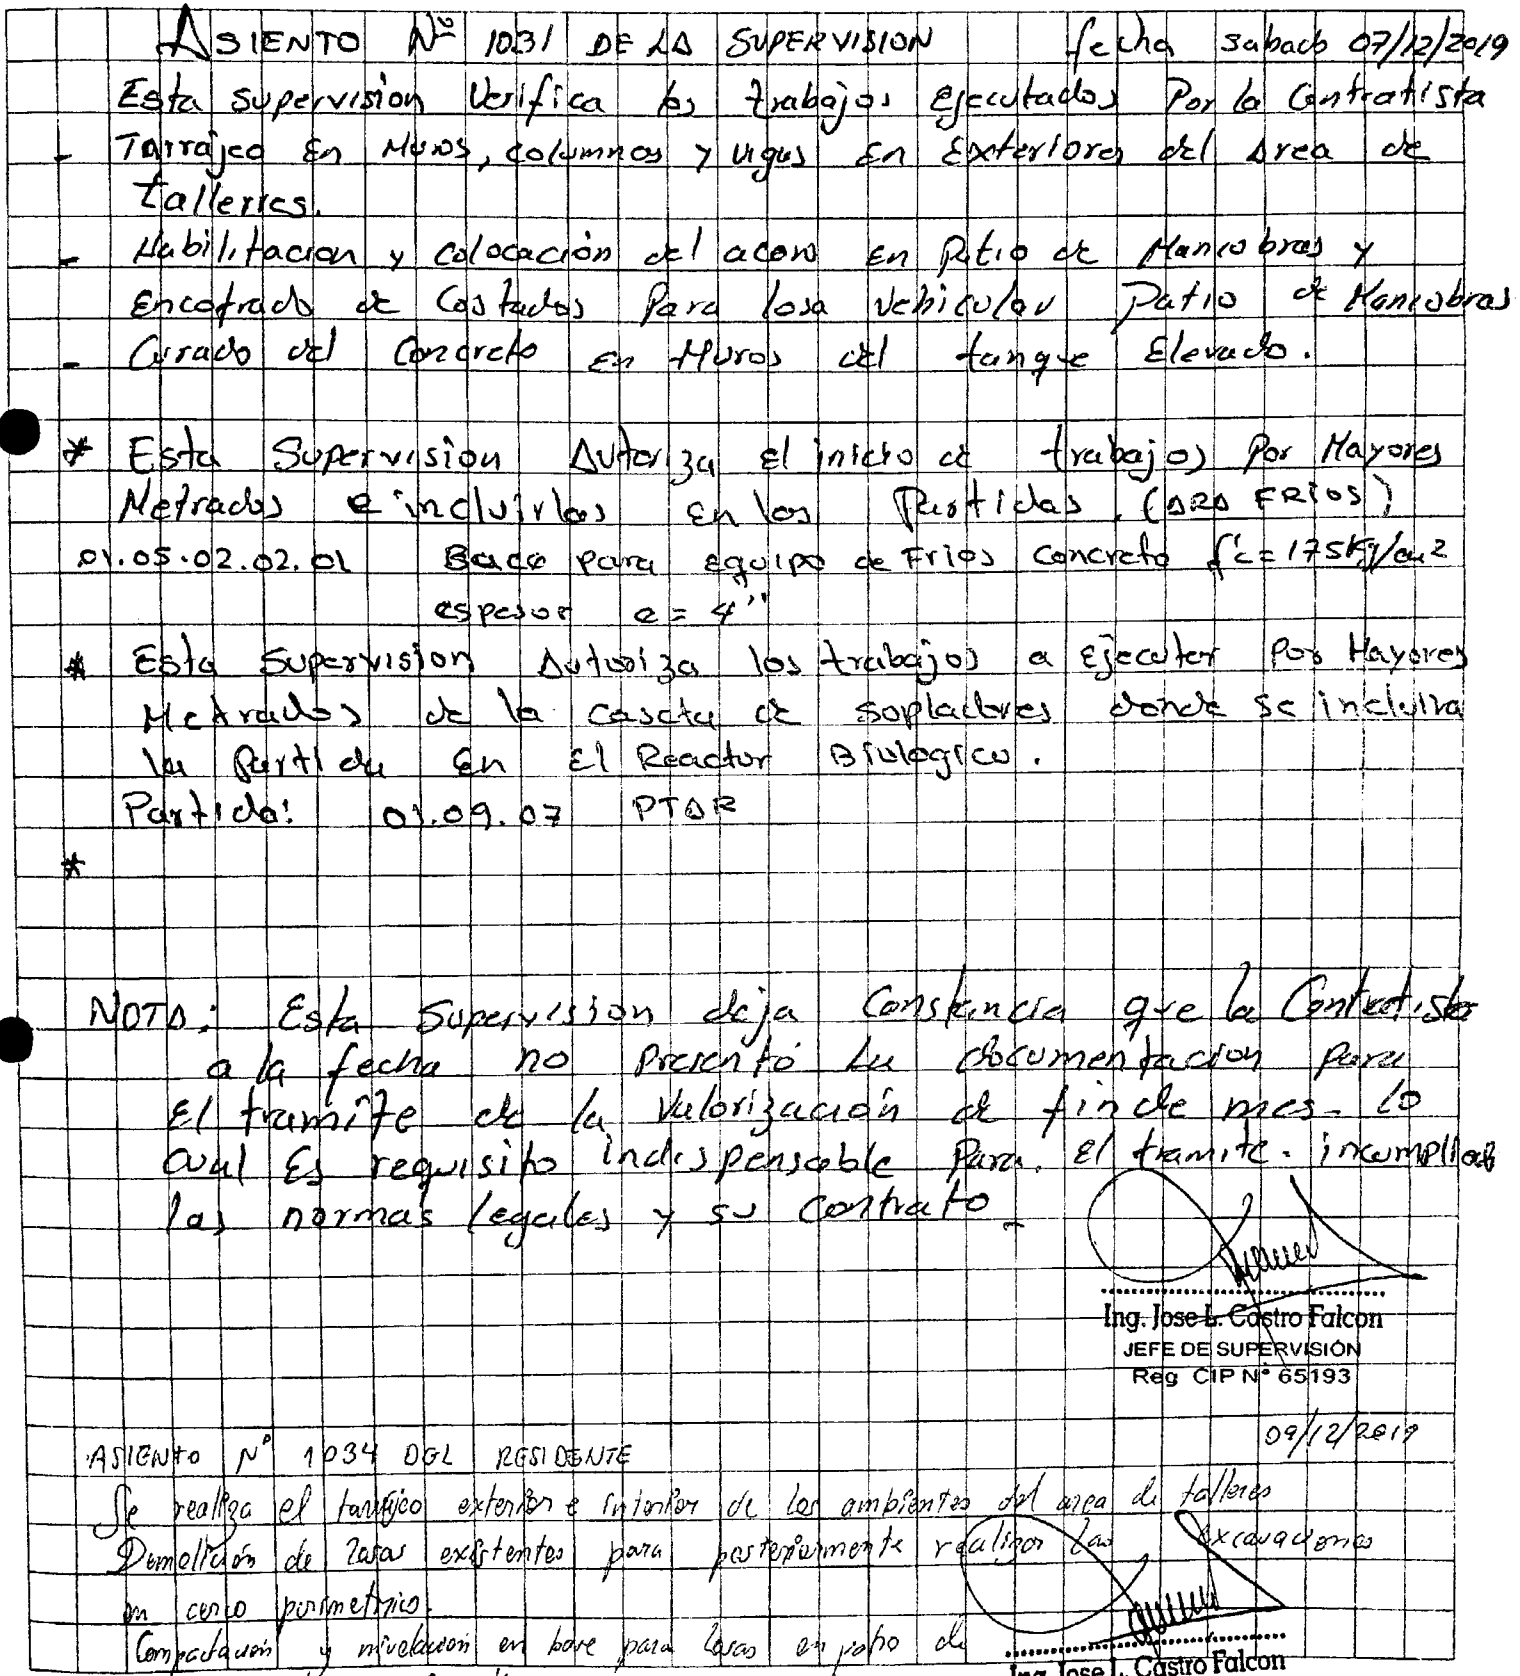 ASIENTO Nº 1031 DE LA SUPERVISION fecha sabado 07/12/2019
Esta supervision Verifica los trabajos Ejecutados Por la Contratista
- Tarrajeo En Muros, columnas y vigas En Exteriores del Area de
talleres.
- Habilitacion y colocación del acero En Patio de Maniobras y
Encofrado de Costados Para losa Vehicular Patio de Maniobras
- Curado del Concreto En Muros del tanque Elevado.
* Esta Supervision Autoriza El inicio de trabajos Por Mayores
Metrados e incluirlos en los Partidas. (ARA FRIOS)
01.05.02.02.01 Base para equipo de Frios concreto f'c=175Kg/cm2
espesor e = 4"
* Esta Supervision Autoriza los trabajos a Ejecutar Por Mayores
Metrados de la caseta de sopladores donde se incluira
la Partida En El Reactor Biologico.
Partida: 01.09.07 PTAR
*
NOTA: Esta Supervission deja Constancia que la Contratista
a la fecha no Presentó La documentacion Para
El tramite de la Valorización de fin de mes - lo
cual Es requisito indispensable Para El tramite. incumpliendo
las normas legales y su Contrato_
Ing. Jose L. Castro Falcon
JEFE DE SUPERVISIÓN
Reg CIP Nº 65193
09/12/2019
ASIENTO Nº 1034 DEL RESIDENTE
Se realiza el tarrajeo exterior e interior de los ambientes del area de talleres
Demolición de losas existentes para posteriormente realizar las excavaciones
en cerco perimetrico.
Compactación y nivelacion en base para losas en patio de
Ing. Jose L. Castro Falcon